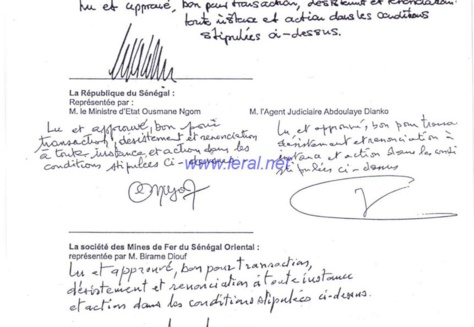 Lu et approuvé, bon pour transaction, désistement et renonciation
toute instance et action dans les conditions
stipulées ci-dessus.
La République du Sénégal :
Représentée par :
M. le Ministre d'Etat Ousmane Ngom
M. l'Agent Judiciaire Abdoulaye Dianko
Lu et approuvé, bon pour
transaction, désistement et renonciation
à toute instance et action dans les
conditions stipulées ci-dessus
Lu et approuvé, bon pour transa
désistement et renonciation à
instance et action dans les condi
stipulées ci-dessus
www.leral.net
La société des Mines de Fer du Sénégal Oriental :
représentée par M. Birame Diouf
Lu et approuvé, bon pour transaction,
désistement et renonciation à toute instance
et action dans les conditions stipulées ci-dessus.